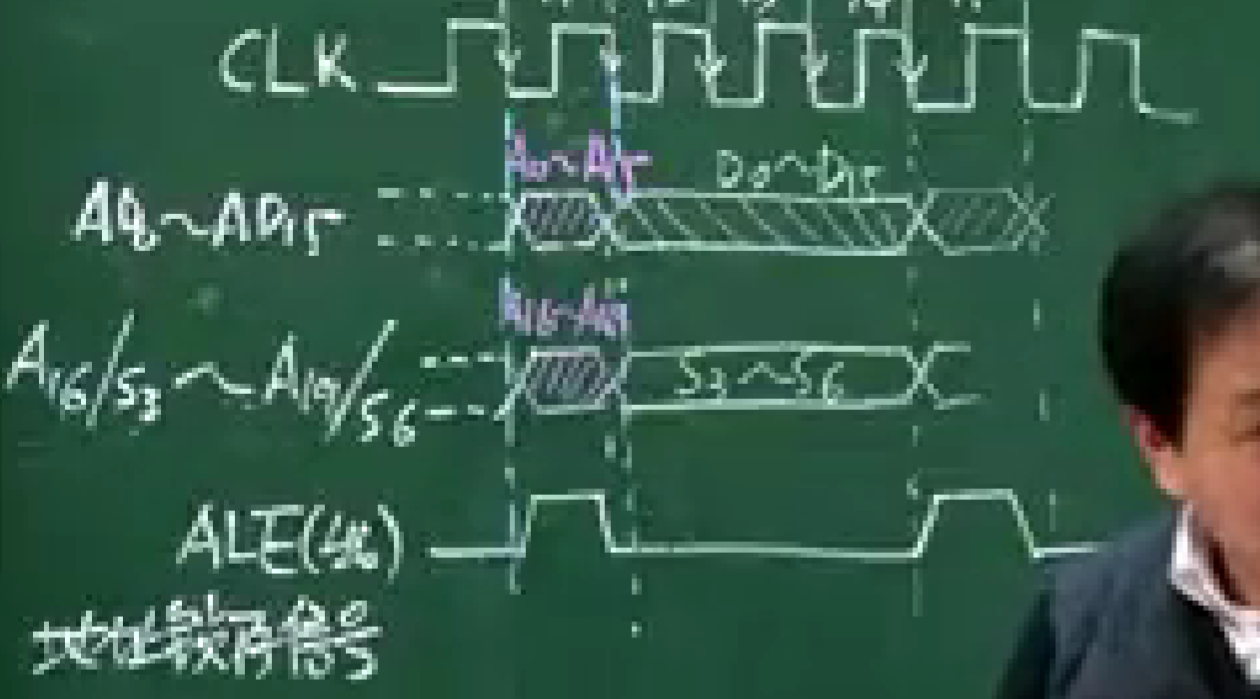 CLK
A0~A15
D0~D15
AD0~AD15
A16~A19
A16/S3~A19/S6
S3~S6
ALE
地址锁存信号